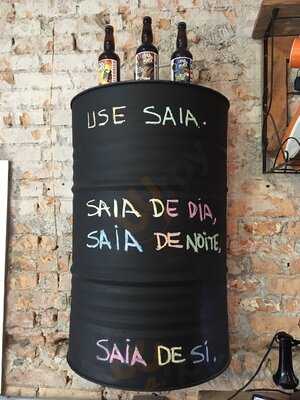 USE SAIA.
SAIA DE DIA,
SAIA DE NOITE,
SAIA DE SÍ.